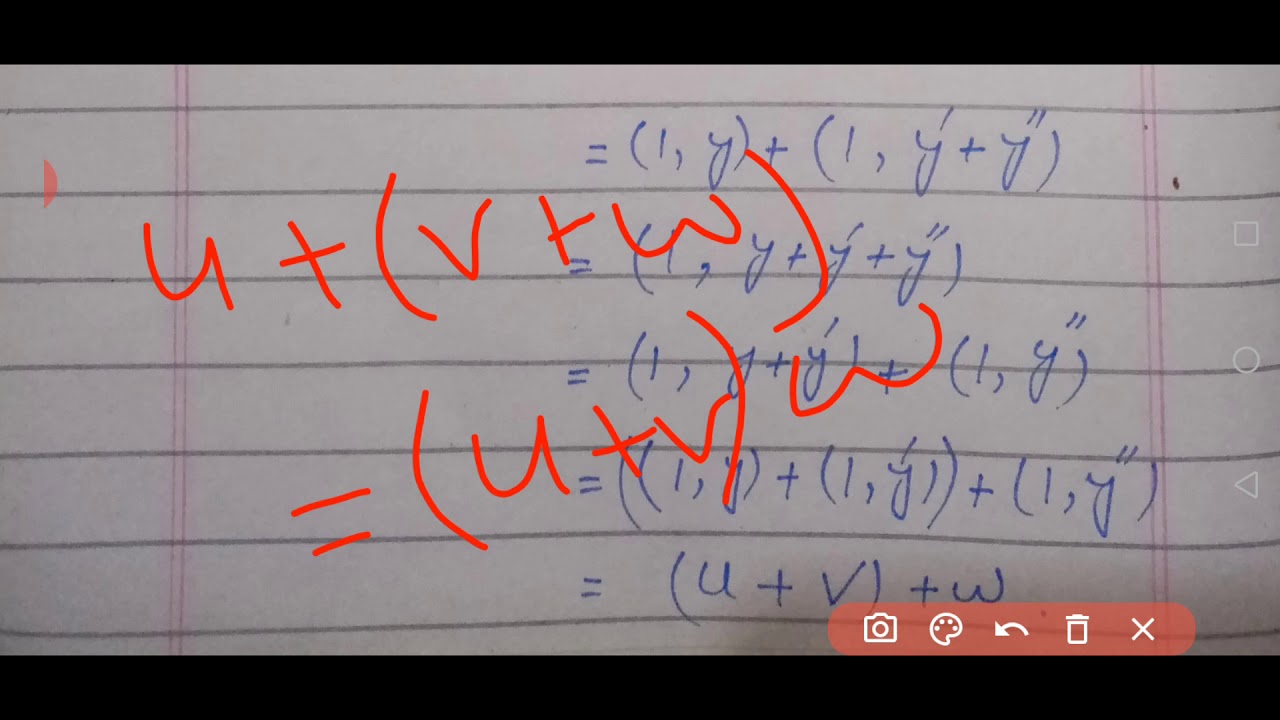 = (1, y) + (1, y′ + y″)
= (1, y + y′ + y″)
= (1, y + y′) + (1, y″)
= ((1, y) + (1, y′)) + (1, y″)
= (u + v) + w
u + (v + w)
= (u + v) w